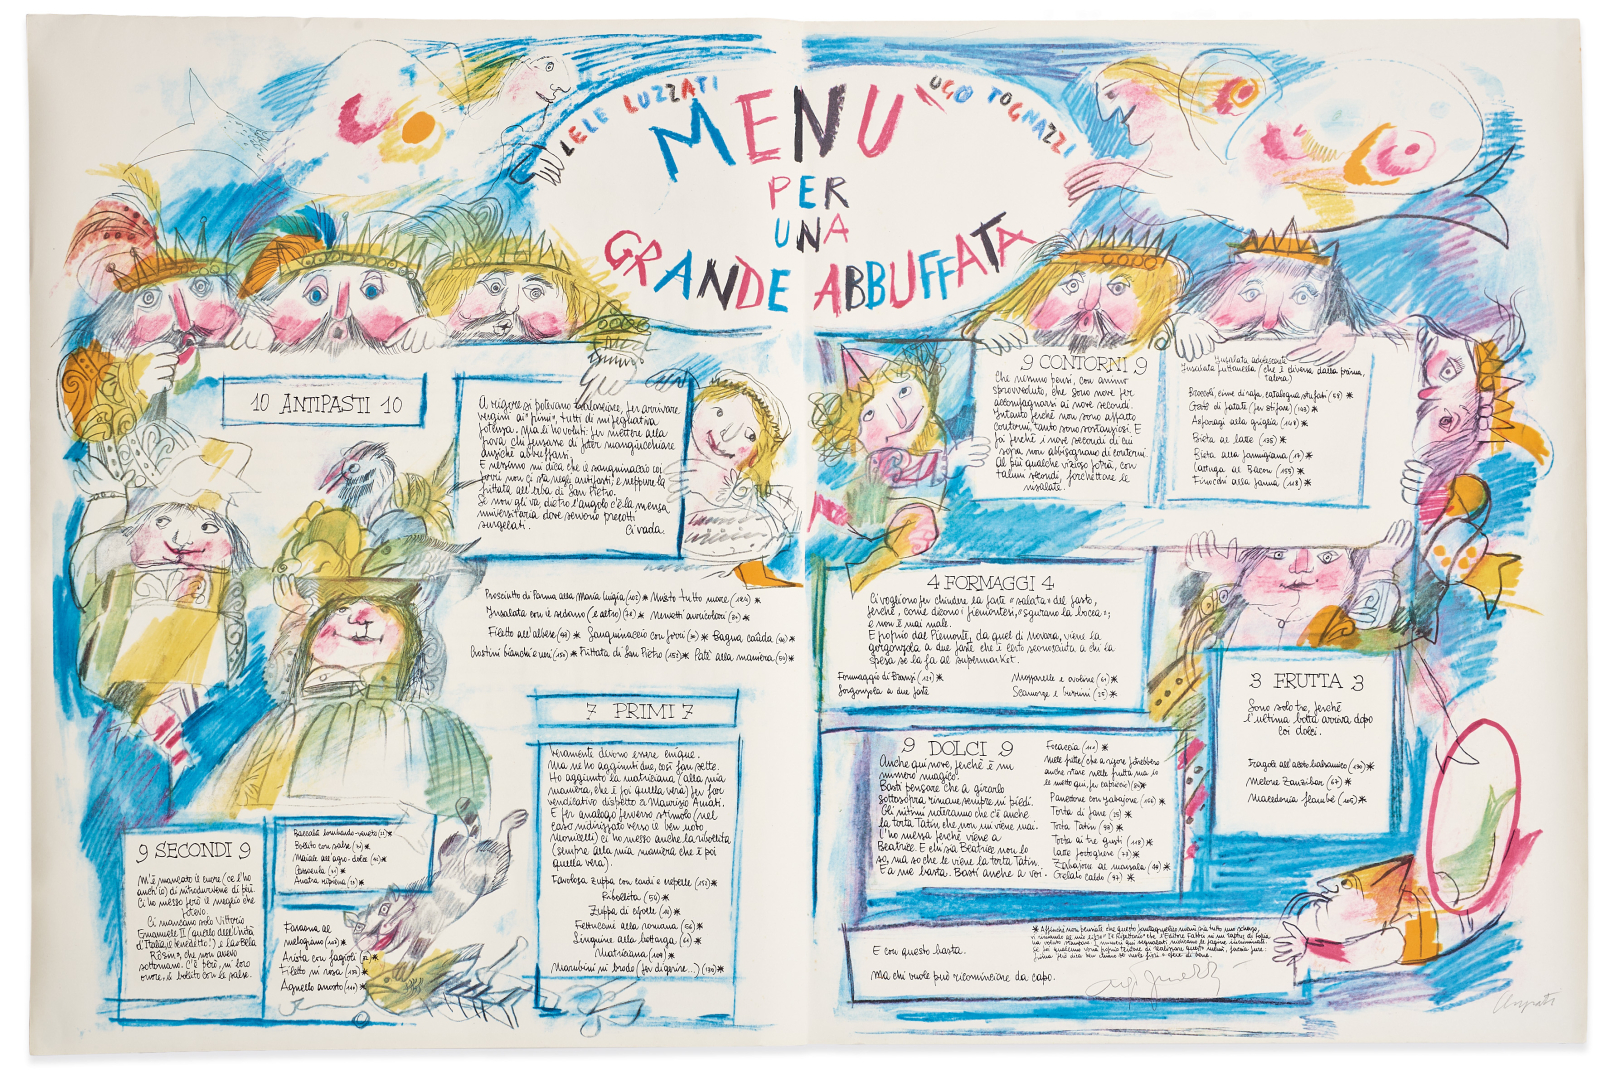 LELE LUZZATI
UGO TOGNAZZI
MENU
PER
UNA
GRANDE ABBUFFATA
10 ANTIPASTI 10
A rigore si potevano tralasciare, per arrivare
vergini ai "primi", tutti di mia pegliativa
potenza. Ma li ho voluti: per mettere alla
prova chi pensasse di poter mangiucchiare
anziché abbuffarsi.
E nessuno mi dica che il sanguinaccio coi
porri non ci sta negli antipasti, e neppure la
frittata all'erba di San Pietro.
Se non gli va, dietro l'angolo c'è la mensa
universitaria dove servono precotti
surgelati.
Ci vada.
Prosciutto di Parma alla Maria Luigia (102) * Misto tutto mare (124) *
Insalata con il sedano (e altro) (78) * Nervetti
Filetto all'albese (49) * Sanguinaccio con porri (90) * Bagna caùda (46) *
Crostini bianchi e neri (150) * Frittata di San Pietro (152) * Paté alla maniera (50) *
7 PRIMI 7
Veramente devono essere cinque.
Ma ne ho aggiunti due, così fan sette.
Ho aggiunto la matriciana (alla mia
maniera, che è poi quella vera) per far
vendicativo dispetto a Maurizio Amati.
E per analogo perverso stimolo (nel
caso indirizzato verso il ben noto
Monicelli) ci ho messo anche la ribollita
(sempre alla mia maniera che è poi
quella vera).
Favolosa zuppa con cardi e nepelle (152) *
Ribollita (54) *
Zuppa di cipolle (42) *
Fettuccini alla romana (56) *
Linguine alla bottarga (64) *
Matriciana (109) *
Marubini in brodo (per digerire...) (130) *
9 SECONDI 9
M'è mancato il cuore (ce l'ho
anch'io) di introdurvene di più.
Ci ho messo però il meglio che
potevo.
Ci mancano solo Vittorio
Emanuele II (quello dell'Unità
d'Italia, e benedetto!) e la «Bela
Rosin», che non avevo
sottomano. C'è però, in loro
onore, il bollito con le salse.
Baccalà lombardo-veneto (21) *
Bollito con salse (74) *
Maiale all'agro-dolce (80) *
Cassoeula (61) *
Anatra ripiena (73) *
Faraona al
melograno (103) *
Arista con fagioli (72) *
Filetto in rosa (132) *
Agnello arrosto (160) *
9 CONTORNI 9
Che nessuno pensi, con animo
sprovveduto, che sono nove per
accompagnarsi ai nove secondi.
Intanto perché non sono affatto
contorni, tanto sono sostanziosi. E
poi perché i nove secondi di cui
sopra non abbisognano di contorni.
Al più qualche vizioso potrà, con
taluni secondi, forchettare le
insalate.
Insalata adolescente
Insalata puttanella (che è diversa dalla prima,
talora)
Broccoli, cime di rapa, catalogna stufati (58) *
Gatò di patate (per stifani) (103) *
Asparagi alla griglia (148) *
Bieta al latte (135) *
Bieta alla parmigiana (17) *
Lattuga al Bacon (155) *
Finocchi alla panna (118) *
4 FORMAGGI 4
Ci vogliono per chiudere la parte «salata» del pasto,
perché, come dicono i piemontesi, «sgurano la bocca»;
e non è mai male.
E proprio dal Piemonte, da quel di Novara, viene la
gorgonzola a due paste che è certo sconosciuta a chi la
spesa se la fa al supermarket.
Formaggio di Branzi (121) *
Gorgonzola a due paste
Mozzarelle e ovoline (61) *
Scamorze e burrini (25) *
3 FRUTTA 3
Sono solo tre, perché
l'ultima botta arriva dopo
coi dolci.
Fragole all'aceto balsamico (136) *
Melone Zanzibar (67) *
Macedonia flambé (165) *
9 DOLCI 9
Anche qui nove, perché è un
numero magico.
Basti pensare che a girarlo
sottosopra rimane sempre in piedi.
Gli intimi noteranno che c'è anche
la torta Tatin che non mi viene mai.
L'ho messa perché viene a
Beatrice. E chi sia Beatrice non lo
so, ma so che le viene la torta Tatin.
E a me basta. Basti anche a voi.
Focaccia (110) *
Mele fritte (che a rigore potrebbero
anche stare nella frutta ma io
le metto qui, per capriccio) (85) *
Panettone con zabajone (156) *
Torta di pane (25) *
Torta Tatin (98) *
Torta ai tre gusti (118) *
Latte portoghese (73) *
Zabajone al marsala (48) *
Gelato caldo (97) *
E con questo basta.
Ma chi vuole può ricominciare da capo.